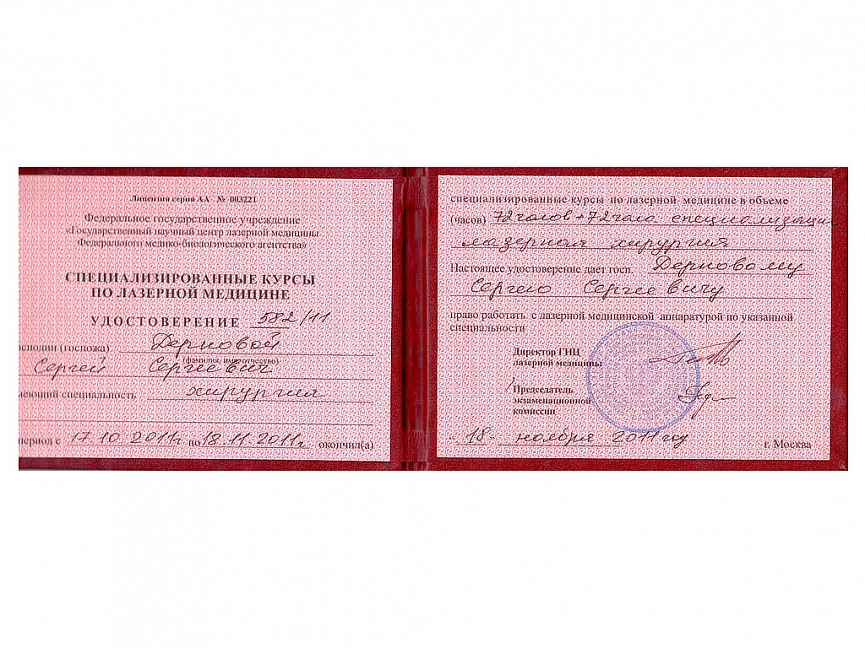 Лицензия серия АА № 003221
Федеральное государственное учреждение
«Государственный научный центр лазерной медицины
Федерального медико-биологического агентства»
СПЕЦИАЛИЗИРОВАННЫЕ КУРСЫ
ПО ЛАЗЕРНОЙ МЕДИЦИНЕ
УДОСТОВЕРЕНИЕ 582/11
осподин (госпожа) Дерновой
(фамилия, имя, отчество)
Сергей Сергеевич
меющий специальность хирургия
период с 17.10.2011г по 18.11.2011г окончил(а)
специализированные курсы по лазерной медицине в объеме
(часов) 72 часов + 72 часа специализации
лазерная хирургия
Настоящее удостоверение дает госп. Дерновому
Сергею Сергеевичу
право работать с лазерной медицинской аппаратурой по указанной
специальности
Директор ГНЦ
лазерной медицины
Председатель
экзаменационной
комиссии
"18" ноября 2011 год г. Москва